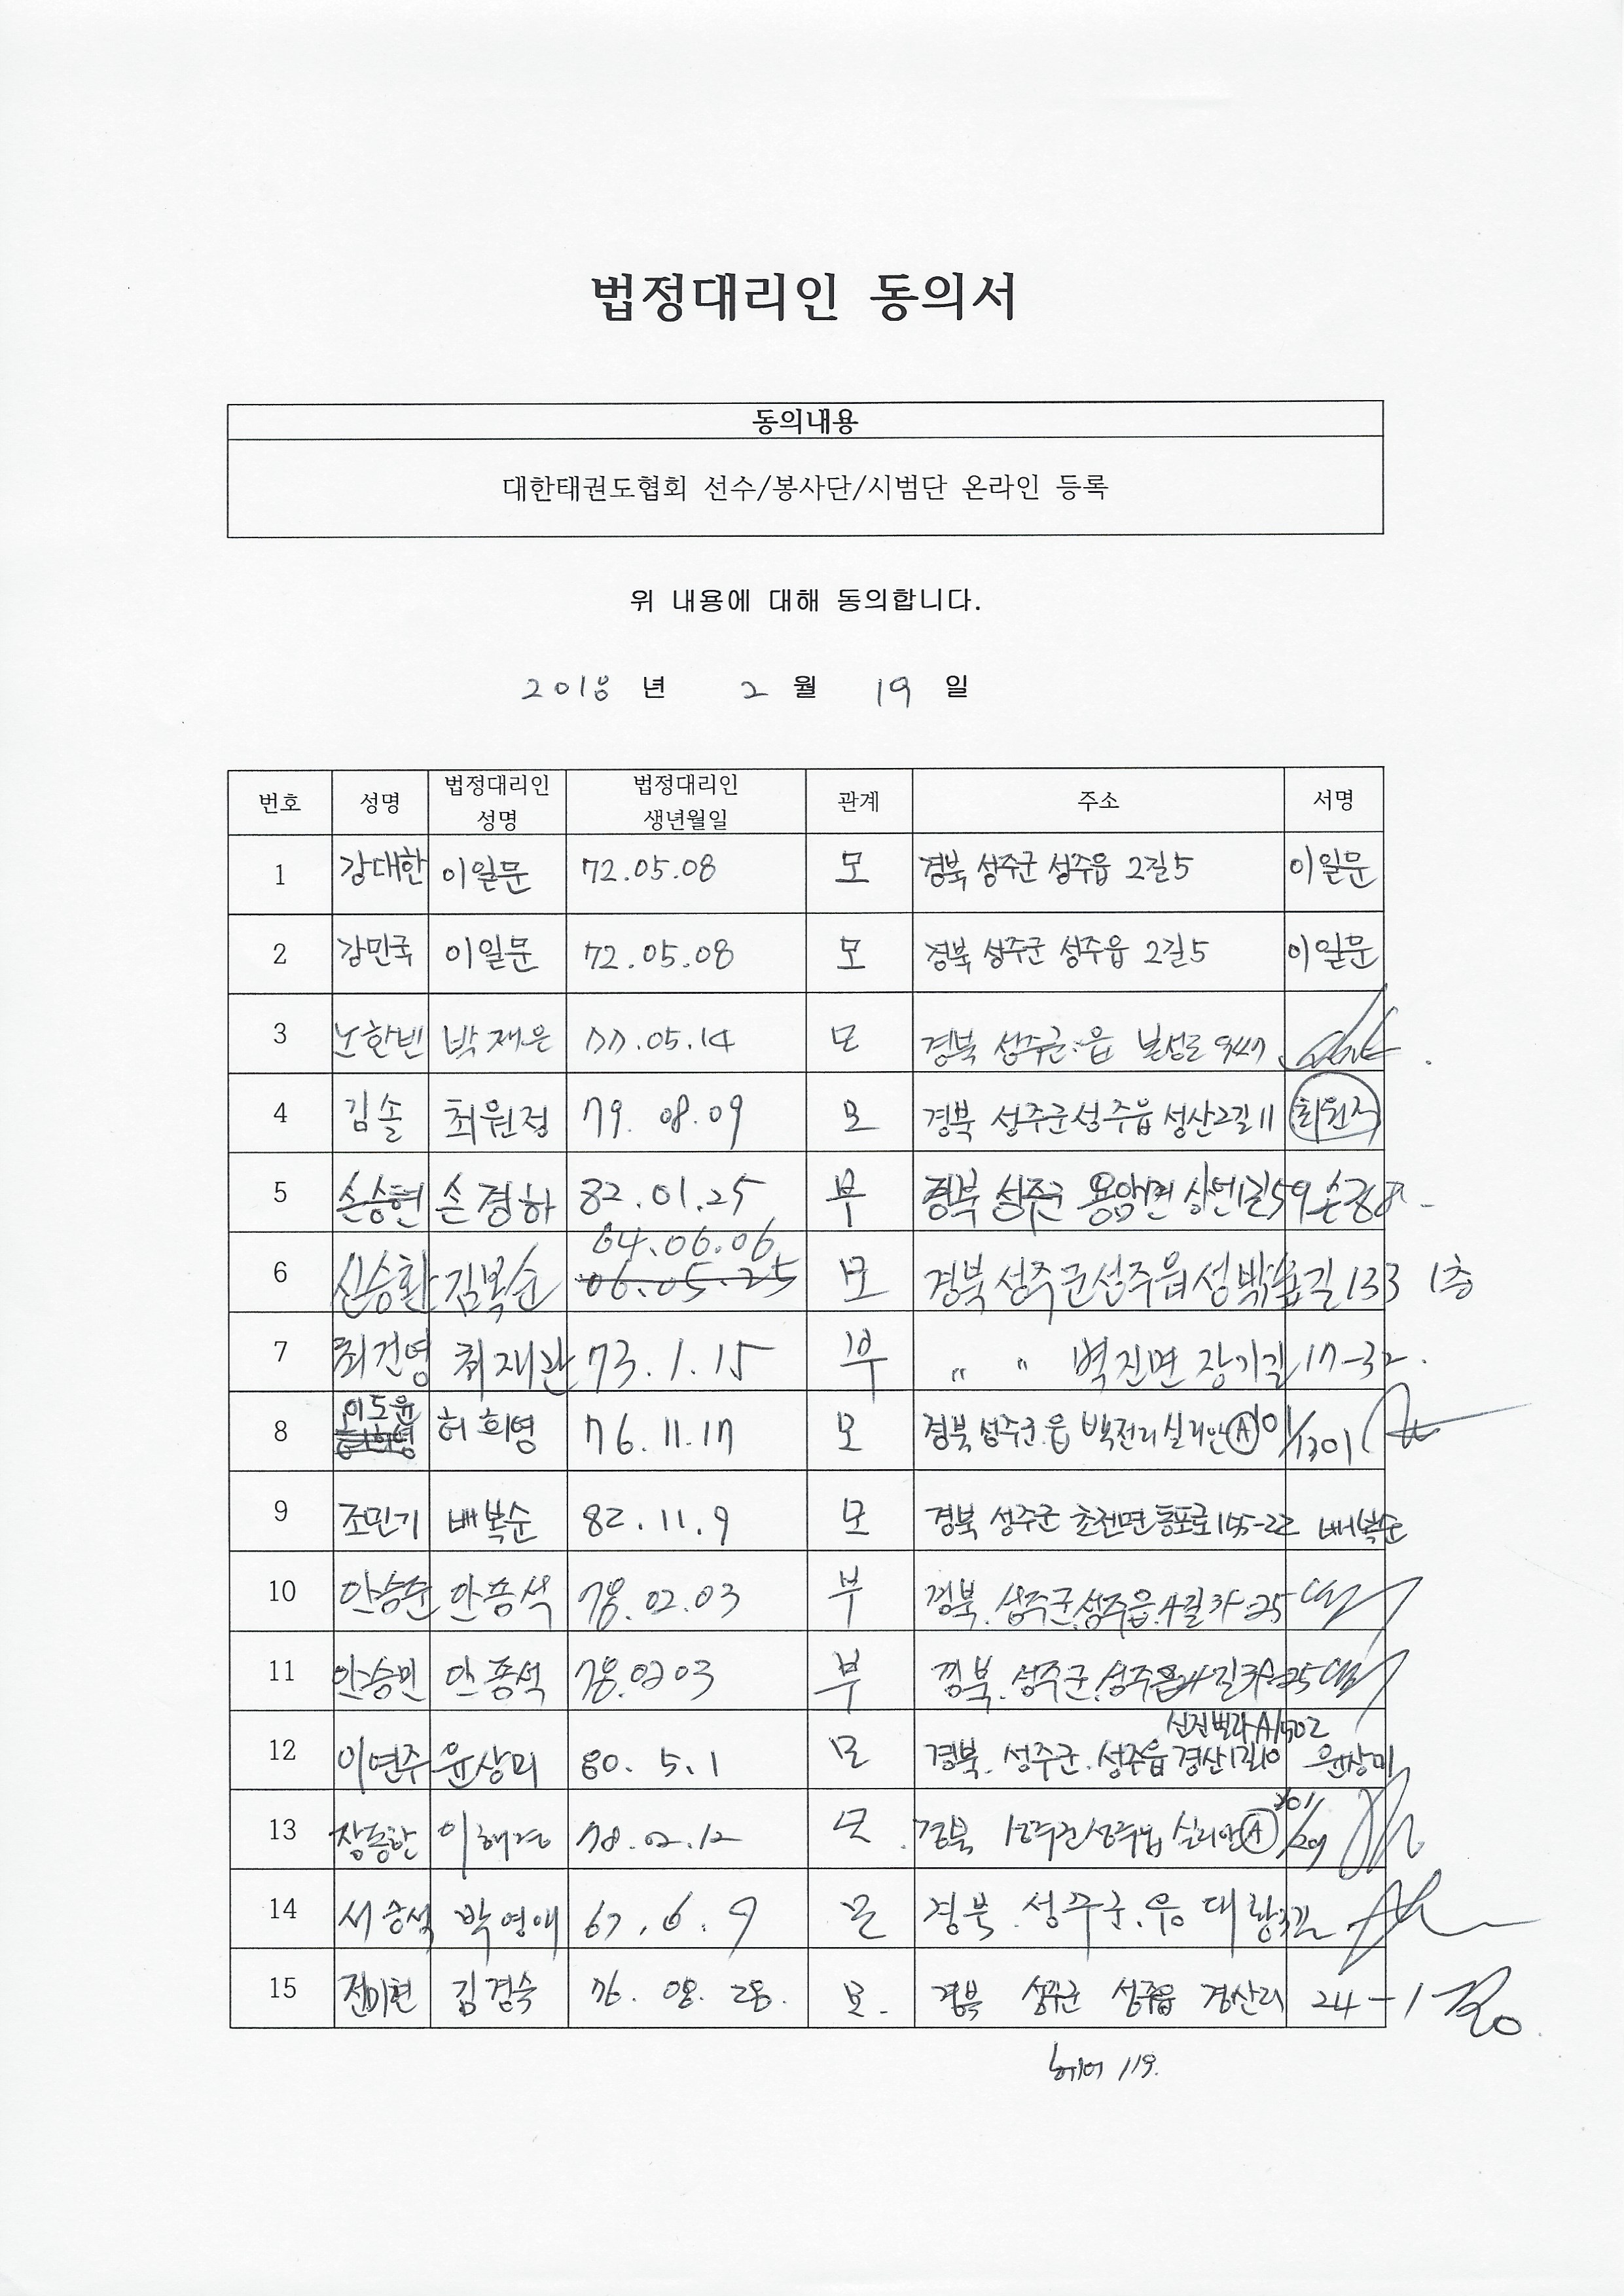 법정대리인 동의서
동의내용
대한태권도협회 선수/봉사단/시범단 온라인 등록
위 내용에 대해 동의합니다.
2018 년 2 월 19 일
번호 성명 법정대리인 성명 법정대리인 생년월일 관계 주소 서명
1 강대한 이일문 72.05.08 모 경북 성주군 성주읍 2길5 이일문
2 강민국 이일문 72.05.08 모 경북 성주군 성주읍 2길5 이일문
3 노한빈 박재은 77.05.14 모 경북 성주군.읍
4 김솔 최원정 79. 08.09 모 경북 성주군 성주읍 성산2길 11 최원정
5 손승현 손경하 82.01.25 부 경북 성주군 용암면
64.06.06
6 신승환 김복순 06.05.25 모 경북 성주군 성주읍 길 133 1층
7 최건영 최재관 73.1.15 부 " " 벽진면 장기길 17-32.
이도윤
8 허희영 76.11.17 모 경북 성주군.읍 백전리 실리안Ⓐ 101/1301
9 조민기 배복순 82.11.9 모 경북 성주군 초전면 155-22 배복순
10 안승준 안종석 78.02.03 부 경북. 성주군.성주읍.
11 안승민 안종석 78.02.03 부 경북. 성주군.성주읍
A/502
12 이연주 윤상미 80. 5.1 모 경북. 성주군. 성주읍 경산1길10 윤상미
201/
13 장동한 이혜경 78.02.12 모 경북 성주군 성주읍 실리안Ⓐ
14 서승석 박영애 67.6.9 모 경북. 성주군.읍
15 전미현 김경숙 76. 08. 28. 모. 경북 성주군 성주읍 경산리 24-1
헤어 119.